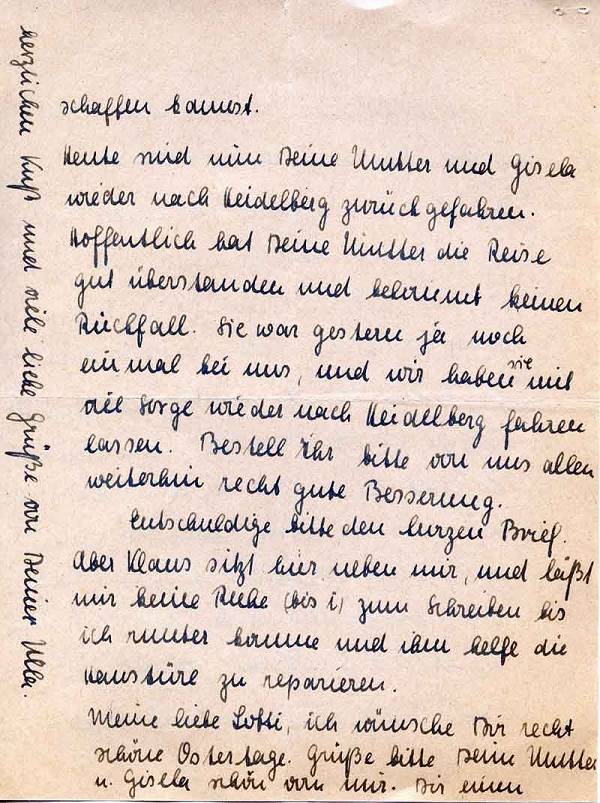 schaffen kannst.
Heute sind nun Deine Mutter und Gisela
wieder nach Heidelberg zurückgefahren.
Hoffentlich hat Deine Mutter die Reise
gut überstanden und bekommt keinen
Rückfall. Sie war gestern ja noch
einmal bei uns, und wir haben sie mit
viel Sorge wieder nach Heidelberg fahren
lassen. Bestell Ihr bitte von uns allen
weiterhin recht gute Besserung.
Entschuldige bitte den kurzen Brief.
Aber Klaus sitzt hier neben mir, und läßt
mir keine Ruhe (bis i) zum Schreiben bis
ich runter komme und ihm helfe die
Haustüre zu reparieren.
Meine liebe Lotti, ich wünsche Dir recht
schöne Ostertage. Grüße bitte Deine Mutter
u. Gisela schön von mir. Dir einen
herzlichen Kuß und viele liebe Grüße von Deiner Ulla.